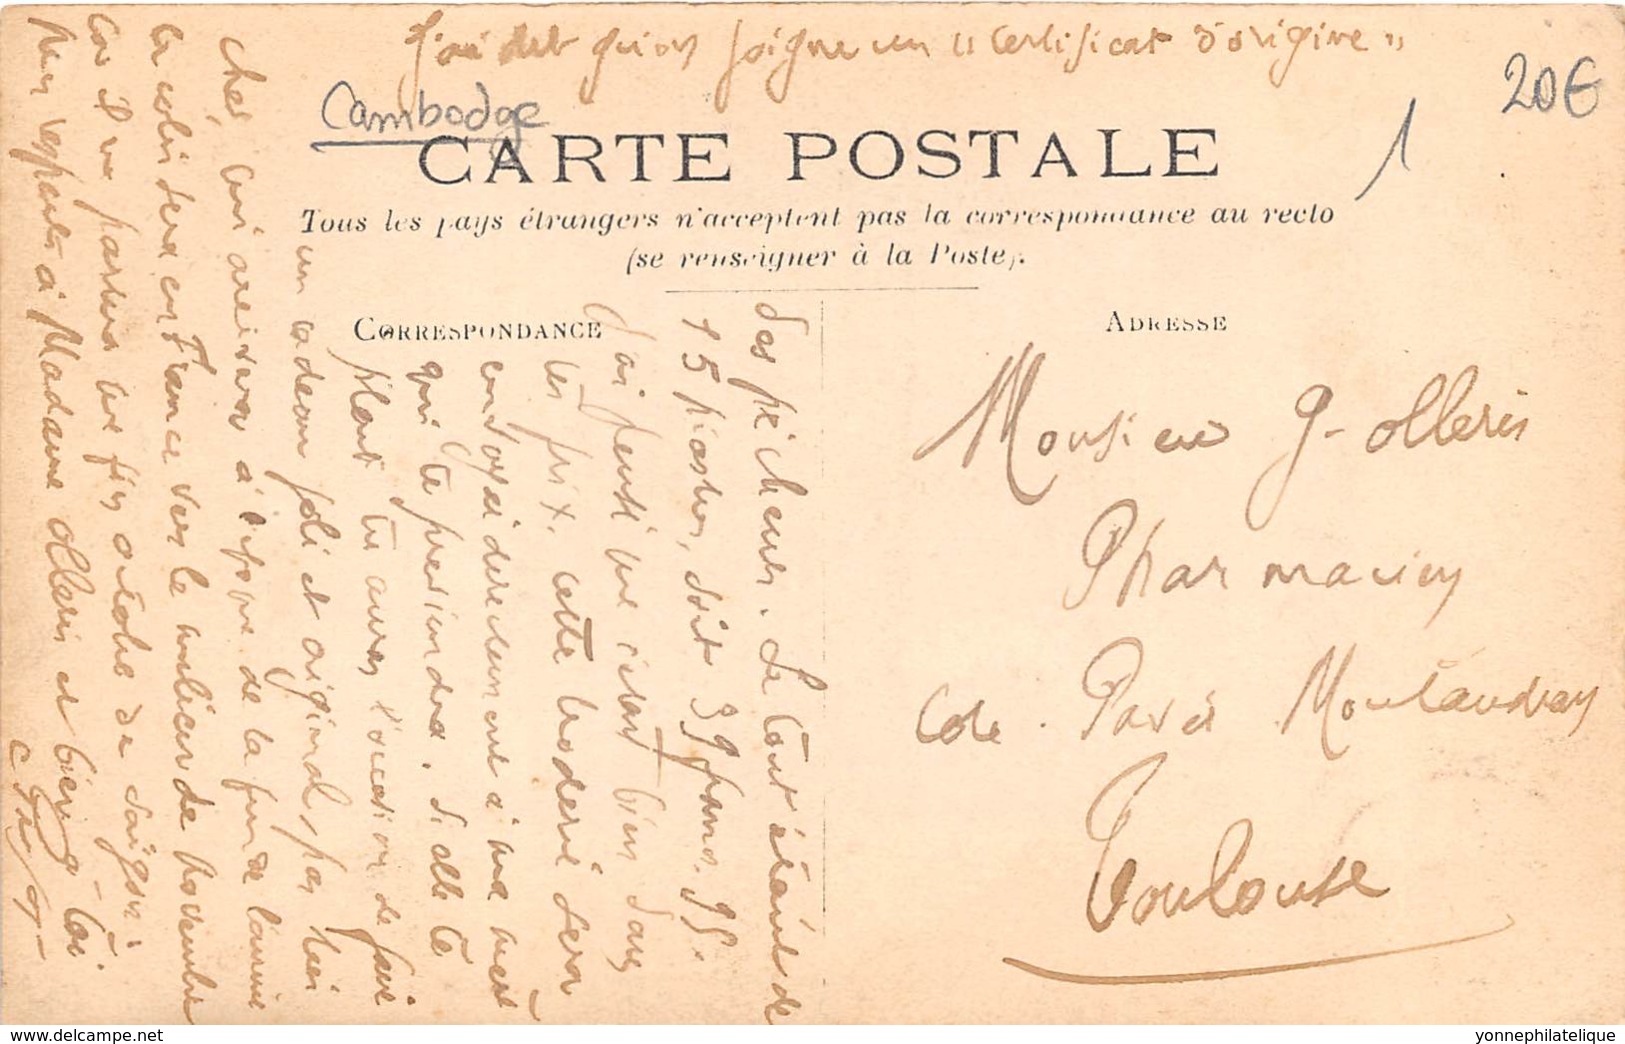 J'ai dit qu'on joigne un "certificat d'origine"
Cambodge
20€
1
CARTE POSTALE
Tous les pays étrangers n'acceptent pas la correspondance au recto
(se renseigner à la Poste).
CORRESPONDANCE
ADRESSE
des pêcheurs. Le tout étant de
15 piastres, soit 39 francs.95.
J'ai pensé que c'était bien dans
les prix. Cette broderie sera
envoyée directement à ma mère
qui te préviendra. Si elle te
plaît tu auras l'occasion de faire
un cadeau joli et original, pas bien
cher, qui arrivera à l'époque de la fin de l'année
Le colis sera en France vers le milieu de novembre
car il va partir une fin octobre de Saïgon.
Mes respects à Madame Olleris et bien à toi
Monsieur G. Olleris
Pharmacien
Côte Pavée Montaudran
Toulouse
www.delcampe.net
yonnephilatelique